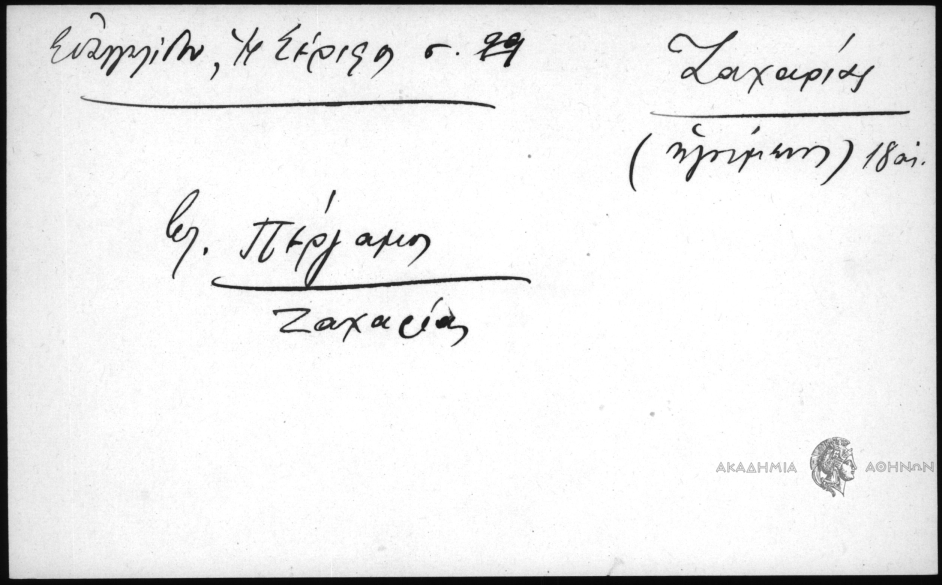 Εὐαγγελίδου, Ἡ Σέριφος σ. 99
Ζαχαρίας
(ἡγούμενος) 18 αἰ.
βλ. Πέργαμος
Ζαχαρίας
ΑΚΑΔΗΜΙΑ ΑΘΗΝΩΝ